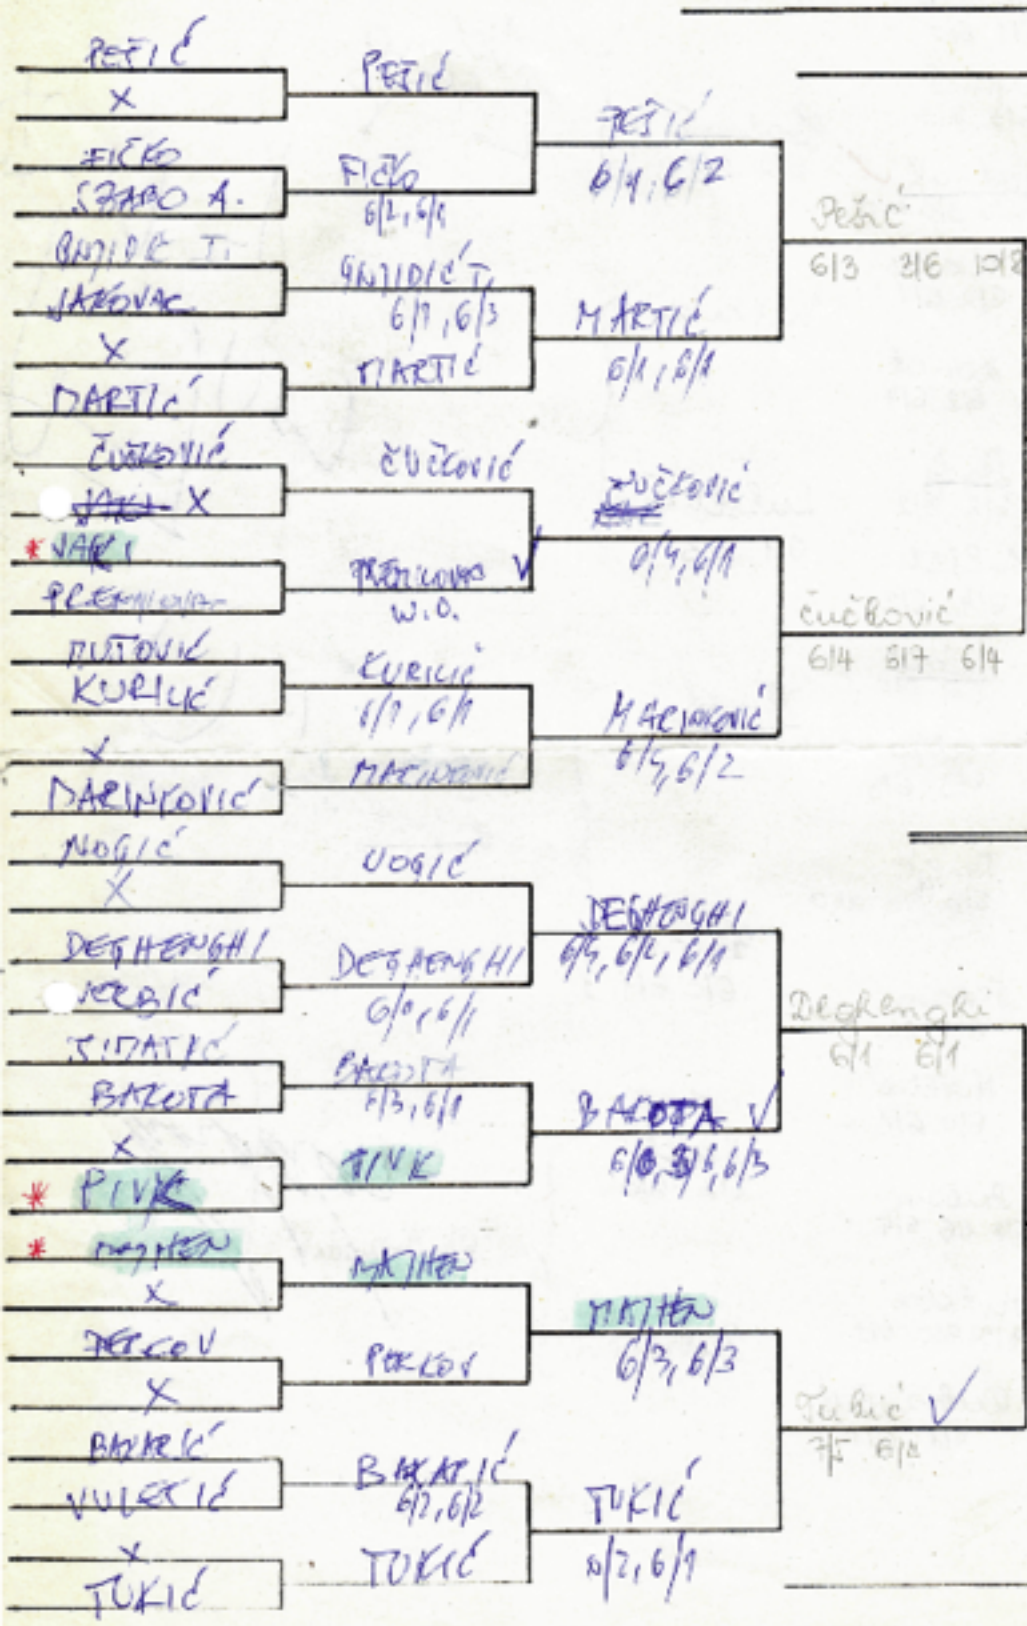 PEŠIĆ
X
FIČKO
SZABO A.
GNJIDIĆ T.
JAKOVAC
X
MARTIĆ
ČUČKOVIĆ
X
* JAKI
KURILIĆ
X
MARINKOVIĆ
NOGIĆ
X
DEGHENGHI
BAKOTA
X
* PIVK
* MAJHEN
X
PERKOV
X
VULETIĆ
X
TUKIĆ
PEŠIĆ
FIČKO
6/2, 6/1
GNJIDIĆ T.
6/1, 6/3
MARTIĆ
ČUČKOVIĆ
W.O.
KURILIĆ
6/1, 6/1
MARINKOVIĆ
NOGIĆ
DEGHENGHI
6/0, 6/1
BAKOTA
6/3, 6/1
PIVK
MAJHEN
PERKOV
BAKARIĆ
6/2, 6/2
TUKIĆ
PEŠIĆ
6/1, 6/2
MARTIĆ
6/1, 6/1
ČUČKOVIĆ
MARINKOVIĆ
6/4, 6/2
DEGHENGHI
BAKOTA
MAJHEN
6/3, 6/3
TUKIĆ
Pešić
6/3 3/6 10/8
Čučković
6/4 6/7 6/4
Deghenghi
6/1 6/1
Tukić
7/5